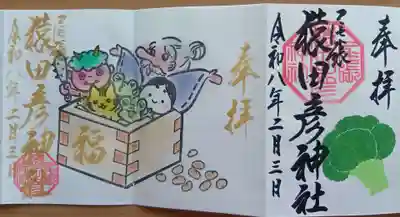 奉拝
猿田彦神社
令和八年二月三日
奉拝
福
猿田彦神社
令和八年二月三日